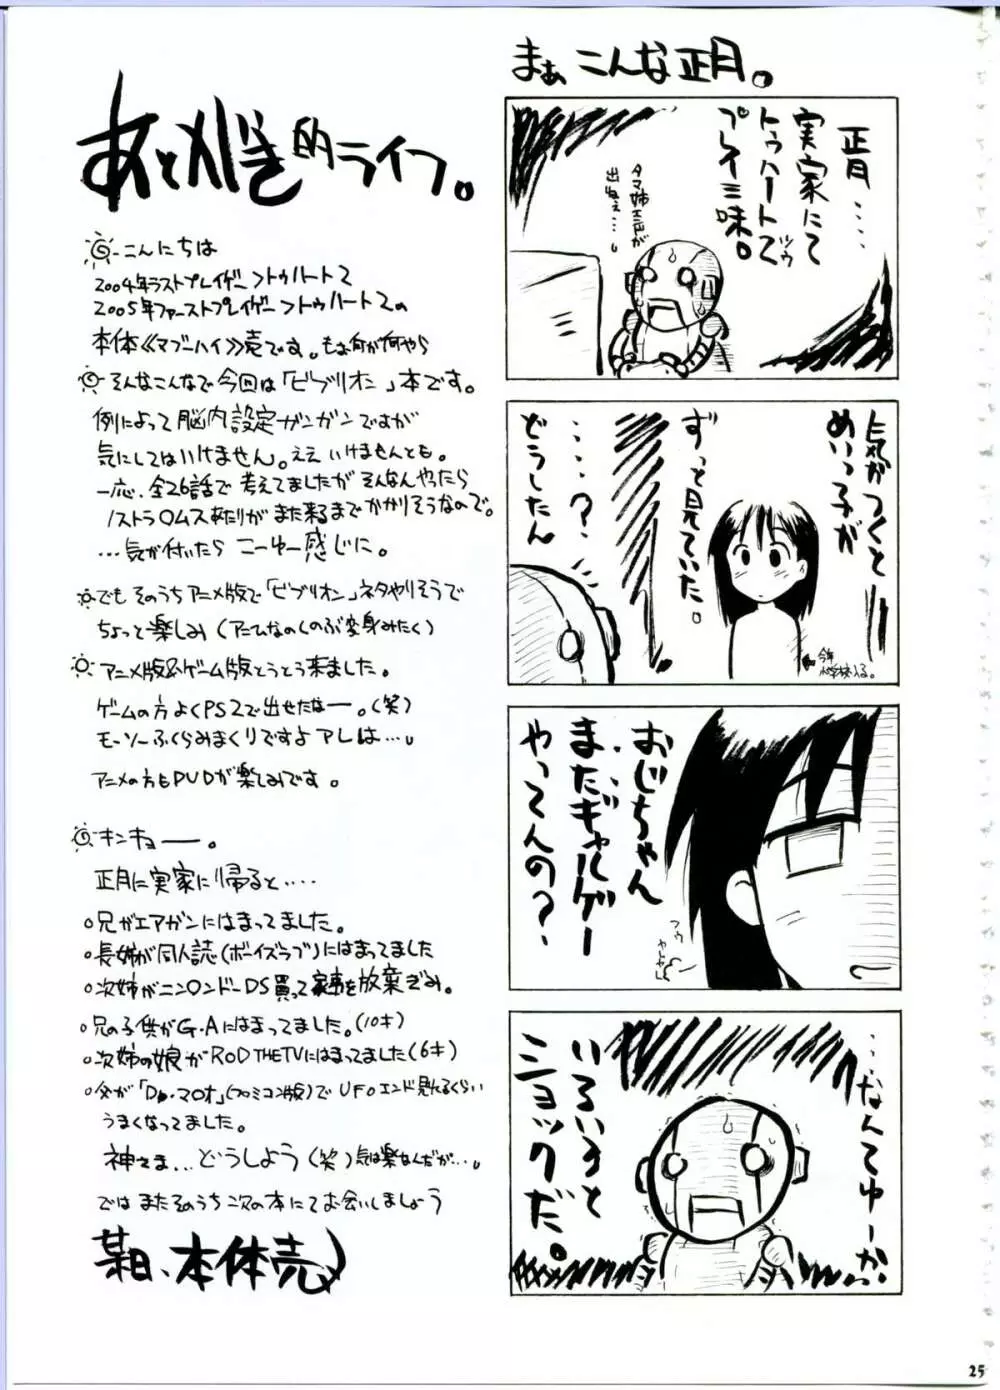 まぁこんな正月。
正月‥‥
実家にて
トゥハート2
ツゥ
プレイ三味。
タマ姉エロが
出ねぇ…。
気がつくと
めいっ子が
ずっと見ていた。
‥‥‥?
どうしたん
今年
小学校入る。
おじちゃん
まだギャルゲー
やってんの?
フゥ
やれやれ
…なんてゆーか
いろいろと
ショックだ。
あとがき的ライフ。
こんにちは
2004年ラストプレイゲー>トゥハート2
2005年ファーストプレイゲー>トゥハート2の
本体《マブーハイ》売です。もぉ何が何やら
そんなこんなで今回は「ビブリオン」本です。
例によって脳内設定ガンガンですが
気にしてはいけません。ええいけませんとも。
一応、全26話で考えてましたがそんなんやったら
ノストラ〇ムスあたりがまた来るまでかかりそうなので。
…気が付いたらこーゆー感じに。
でもそのうちアニメ版で「ビブリオン」ネタやりそうで
ちょっと楽しみ(アニムなのくのぶ変身みたく)
アニメ版&ゲーム版とうとう来ました。
ゲームの方よくPS2で出せたなー。(笑)
モーソーふくらみまくりですよアレは…。
アニメの方もDVDが楽しみです。
キンキョー。
正月に実家に帰ると‥‥
○兄がエアガンにはまってました。
○長姉が同人誌(ボーイズラブ)にはまってました
○次姉がニン〇ンドーDS買って家事を放棄ぎみ。
○兄の子供がG.Aにはまってました。(10才)
○次姉の娘がROD THE TVにはまってました(6才)
○父が「Dr.マ〇オ」(ファミコン版)でUFOエンド見れるくらい
うまくなってました。
神さま…どうしよう(笑)気は楽なんだが…。
ではまたそのうち次の本にてお会いしましょう
某日、本体売
25